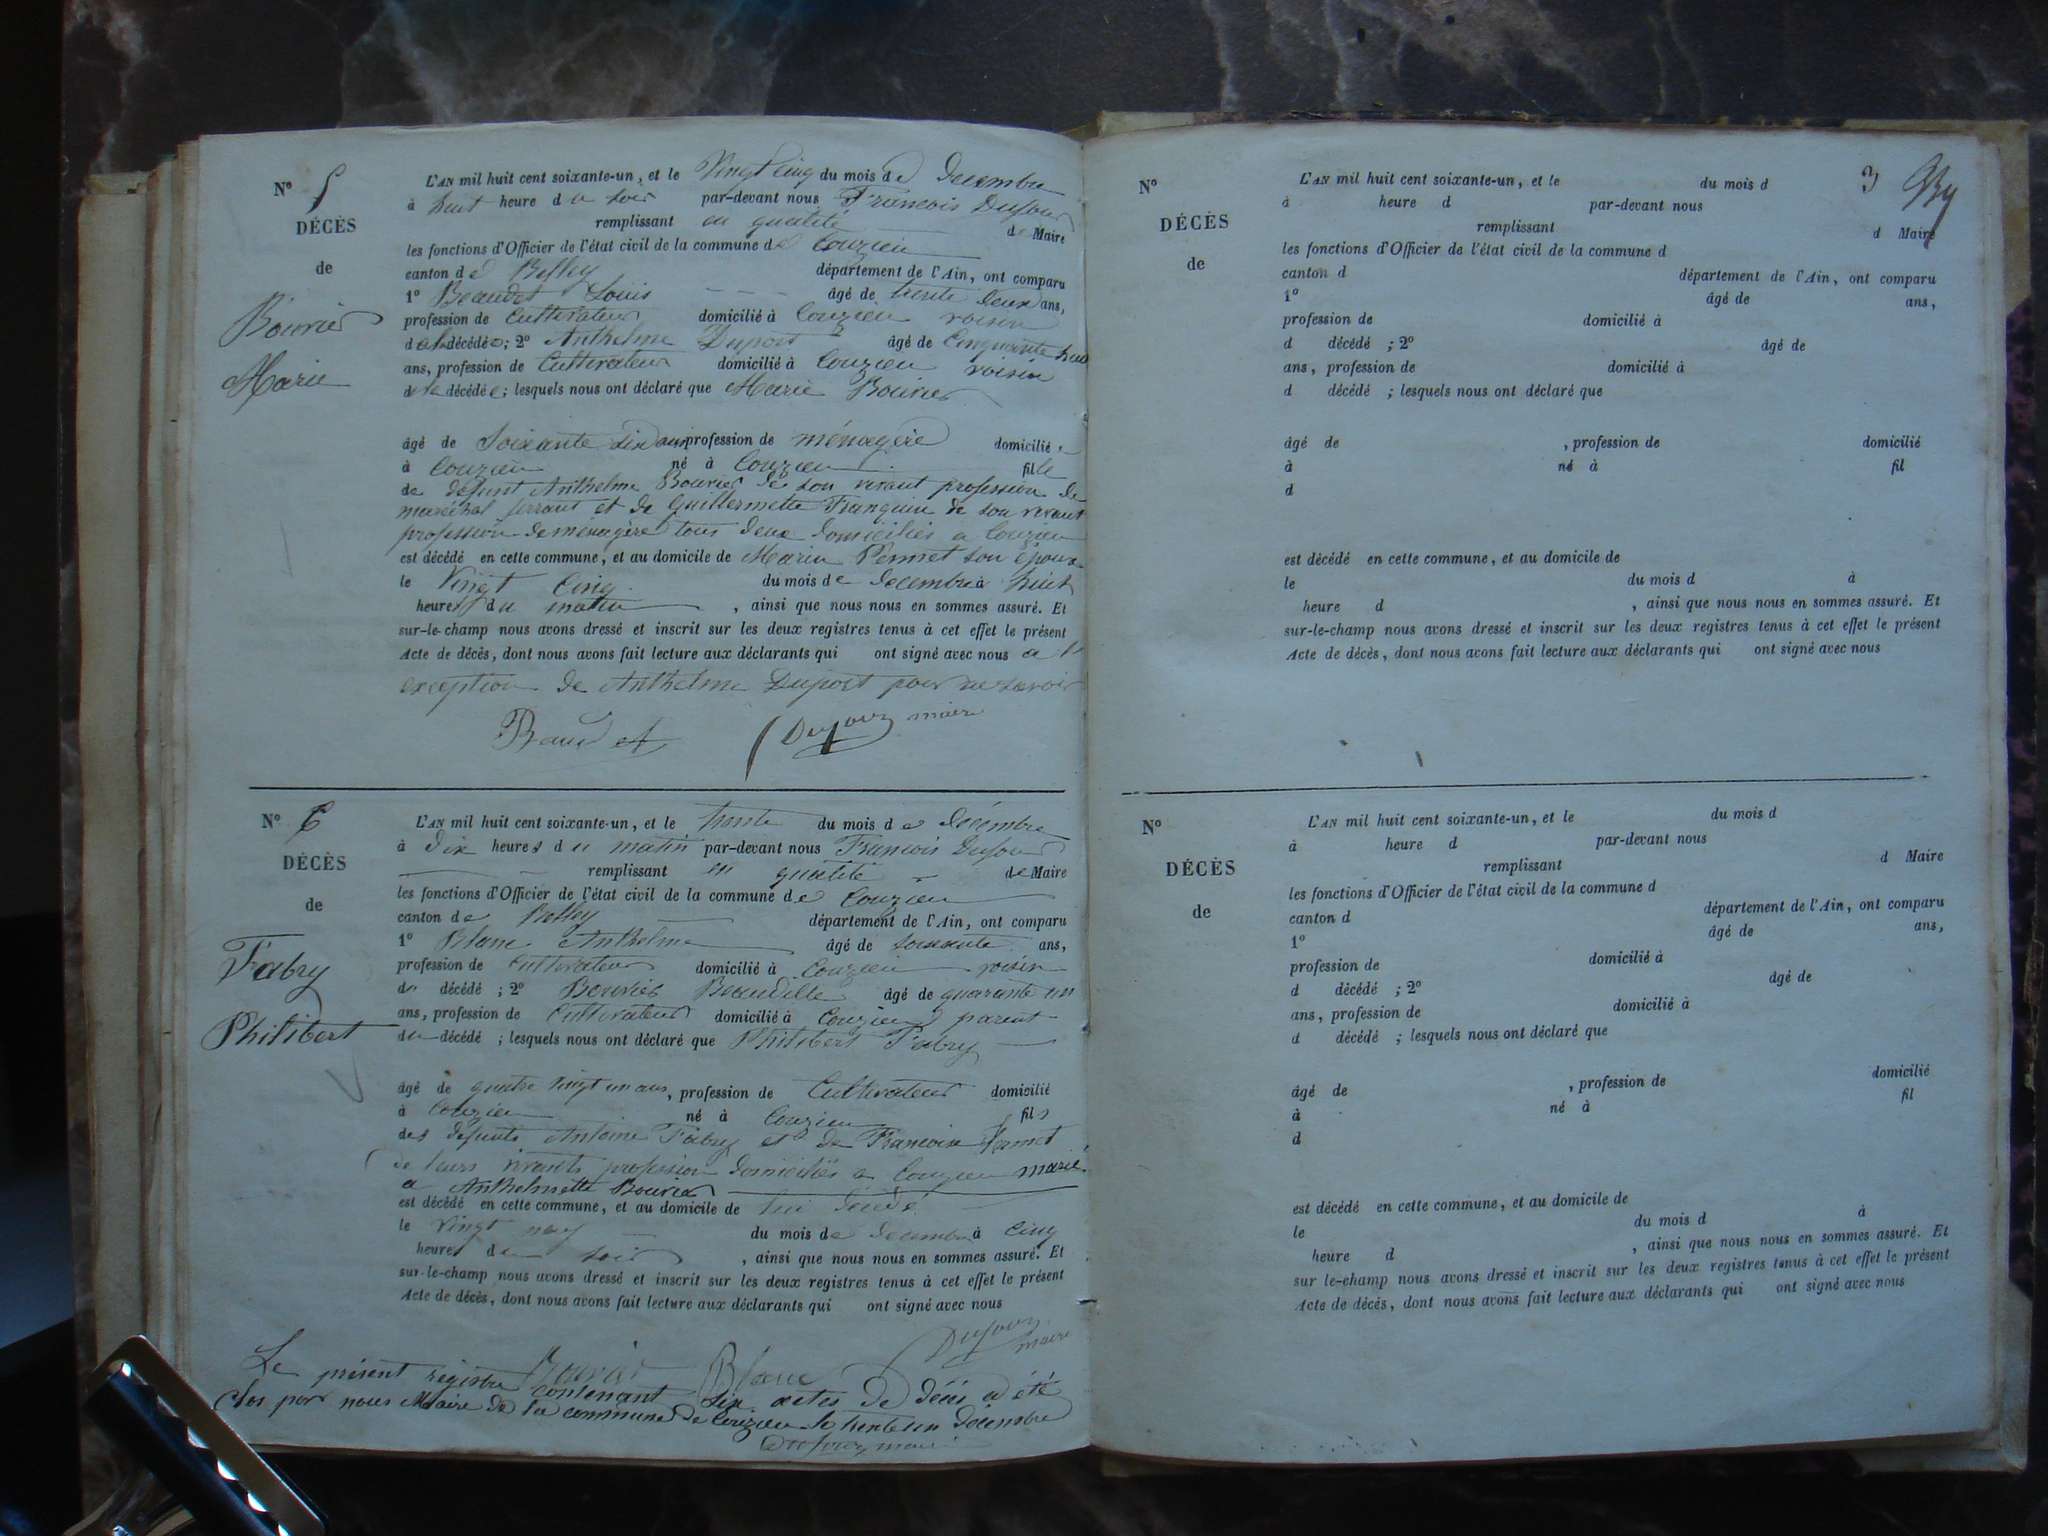 N° 5
DÉCÈS
de
Bouvier
Marie
L'AN mil huit cent soixante-un, et le Vingt cinq du mois de Decembre
à huit heure du soir par-devant nous Francois Dufour
remplissant en qualité de Maire
les fonctions d'Officier de l'état civil de la commune de Couzieu
canton de Belley département de l'Ain, ont comparu
1° Beaudet Louis âgé de trente deux ans,
profession de Cultivateur domicilié à Couzieu voisin
de la décédée; 2° Anthelme Duport âgé de Cinquante huit
ans, profession de Cultivateur domicilié à Couzieu voisin
de la décédée; lesquels nous ont déclaré que Marie Bouvier
âgé de Soixante dix ans profession de ménagère domicilié
à Couzieu né à Couzieu fille
de defunt Anthelme Bouvier de son vivant profession de
maréchal ferrant et de Guillermette Franquin de son vivant
profession de ménagère tous deux domiciliés a Couzieu
est décédé en cette commune, et au domicile de Marin Pennet son époux
le Vingt Cinq du mois de Decembre à huit
heures du matin, ainsi que nous nous en sommes assuré. Et
sur-le-champ nous avons dressé et inscrit sur les deux registres tenus à cet effet le présent
Acte de décès, dont nous avons fait lecture aux déclarants qui ont signé avec nous a l
exception de Anthelme Duport pour ne savoir
Baudet Dufour maire
N° 6
DÉCÈS
de
Fabry
Philibert
L'AN mil huit cent soixante-un, et le trente du mois de Décembre
à Dix heures du matin par-devant nous Francois Dufour
remplissant en qualité de Maire
les fonctions d'Officier de l'état civil de la commune de Couzieu
canton de Belley département de l'Ain, ont comparu
1° Blanc Anthelme âgé de soixante ans,
profession de Cultivateur domicilié à Couzieu voisin
du décédé; 2° Bouvier Beaudille âgé de quarante un
ans, profession de Cultivateur domicilié à Couzieu parent
du décédé; lesquels nous ont déclaré que Philibert Fabry
âgé de quatre vingt un ans, profession de Cultivateur domicilié
à Couzieu né à Couzieu fils
des defunts Antoine Fabry et de Francoise Pennet
de leurs vivants profession domiciliés a Couzieu marié
a Anthelmette Bouvier
est décédé en cette commune, et au domicile de lui décédé
le Vingt neuf du mois de Decembre à Cinq
heures du soir, ainsi que nous nous en sommes assuré. Et
sur-le-champ nous avons dressé et inscrit sur les deux registres tenus à cet effet le présent
Acte de décès, dont nous avons fait lecture aux déclarants qui ont signé avec nous
Dufour maire
Bouvier Blanc
Le présent registre contenant six actes de décès a été
clos par nous Maire de la commune de Couzieu le trente un Décembre
Dufour maire
3
N°
DÉCÈS
de
L'AN mil huit cent soixante-un, et le du mois d
à heure d par-devant nous
remplissant d Maire
les fonctions d'Officier de l'état civil de la commune d
canton d département de l'Ain, ont comparu
1° âgé de ans,
profession de domicilié à
d décédé ; 2° âgé de
ans, profession de domicilié à
d décédé ; lesquels nous ont déclaré que
âgé de , profession de domicilié
à né à fil
d
est décédé en cette commune, et au domicile de
le du mois d à
heure d , ainsi que nous nous en sommes assuré. Et
sur-le-champ nous avons dressé et inscrit sur les deux registres tenus à cet effet le présent
Acte de décès, dont nous avons fait lecture aux déclarants qui ont signé avec nous
N°
DÉCÈS
de
L'AN mil huit cent soixante-un, et le du mois d
à heure d par-devant nous
remplissant d Maire
les fonctions d'Officier de l'état civil de la commune d
canton d département de l'Ain, ont comparu
1° âgé de ans,
profession de domicilié à
d décédé ; 2° âgé de
ans, profession de domicilié à
d décédé ; lesquels nous ont déclaré que
âgé de , profession de domicilié
à né à fil
d
est décédé en cette commune, et au domicile de
le du mois d à
heure d , ainsi que nous nous en sommes assuré. Et
sur le-champ nous avons dressé et inscrit sur les deux registres tenus à cet effet le présent
Acte de décès, dont nous avons fait lecture aux déclarants qui ont signé avec nous